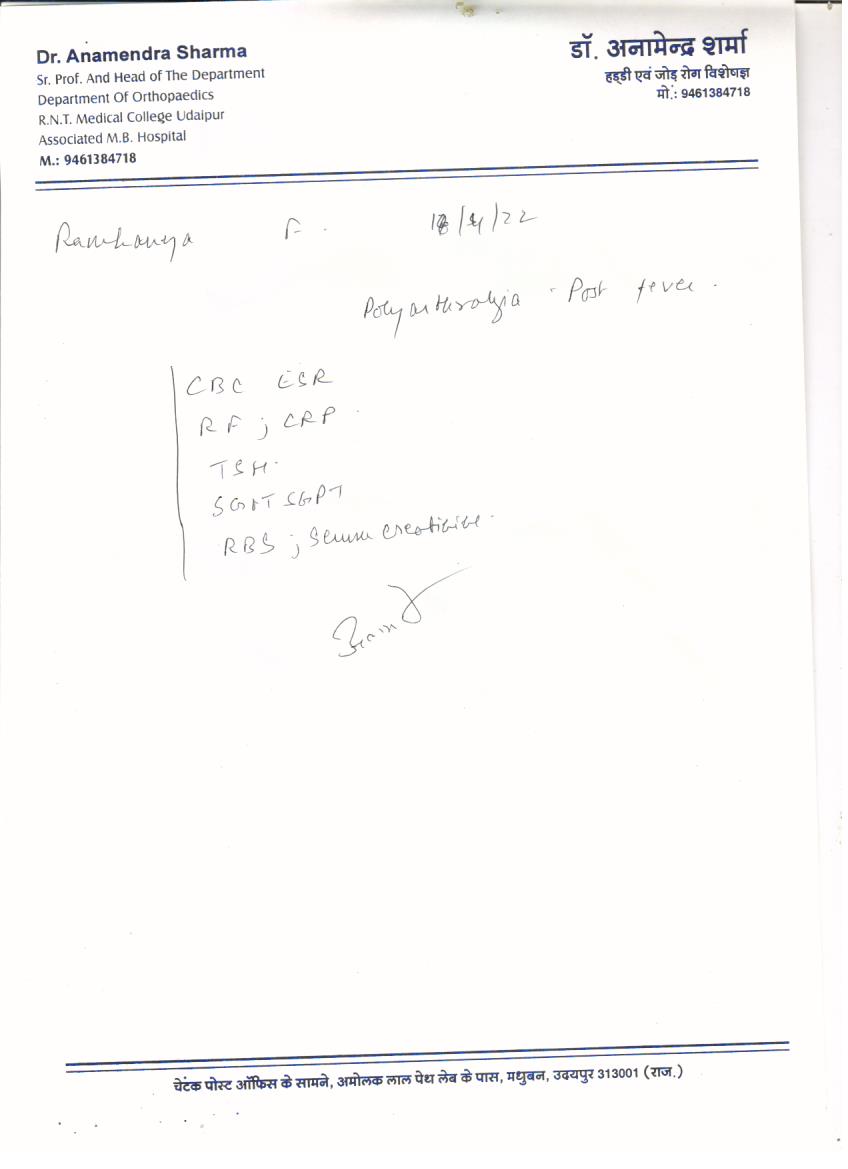 Dr. Anamendra Sharma
Sr. Prof. And Head of The Department
Department Of Orthopaedics
R.N.T. Medical College Udaipur
Associated M.B. Hospital
M.: 9461384718
डॉ. अनामेन्द्र शर्मा
हड्डी एवं जोड़ रोग विशेषज्ञ
मो.: 9461384718
Ramkanya F. /22
Polyarthralgia - Post fever.
CBC ESR
RF ; CRP
TSH.
SGOT SGPT
RBS ; Serum creatinine.
चेटक पोस्ट ऑफिस के सामने, अमोलक लाल पेथ लेब के पास, मधुबन, उदयपुर 313001 (राज.)